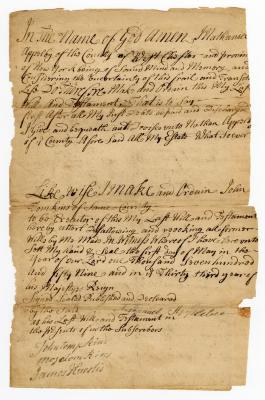 In the Name of God Amen I Nathaniel
Appelby of the County of West Chester and province
of New York being of Sound Mind and Memory and
Considering the uncertainty of this frail and Transitory
Life Do therefore Make and Ordain this My Last
Will And Testament that is to Say
First After all My Just Debts is paid and Discharged
I give and bequeath and unto Nathan
of County afore Said all My Estate What soever
Lastly I Make and Ordain John
Tompkins of Same County
to be Executor of this My Last Will and Testament
hereby utterly disallowing and revoking all former
Wills by Me Made in Witness whereof I have hereunto
Set My Hand and Seal the first Day of May in the
Year of our Lord one Thousand Seven hundred
and fifty Nine and in the Thirty third year of
his Majestys Reign
Signed Sealed Published and Declared
by the Said
as his Last Will and Testament in
the presents of us the Subscribers
James